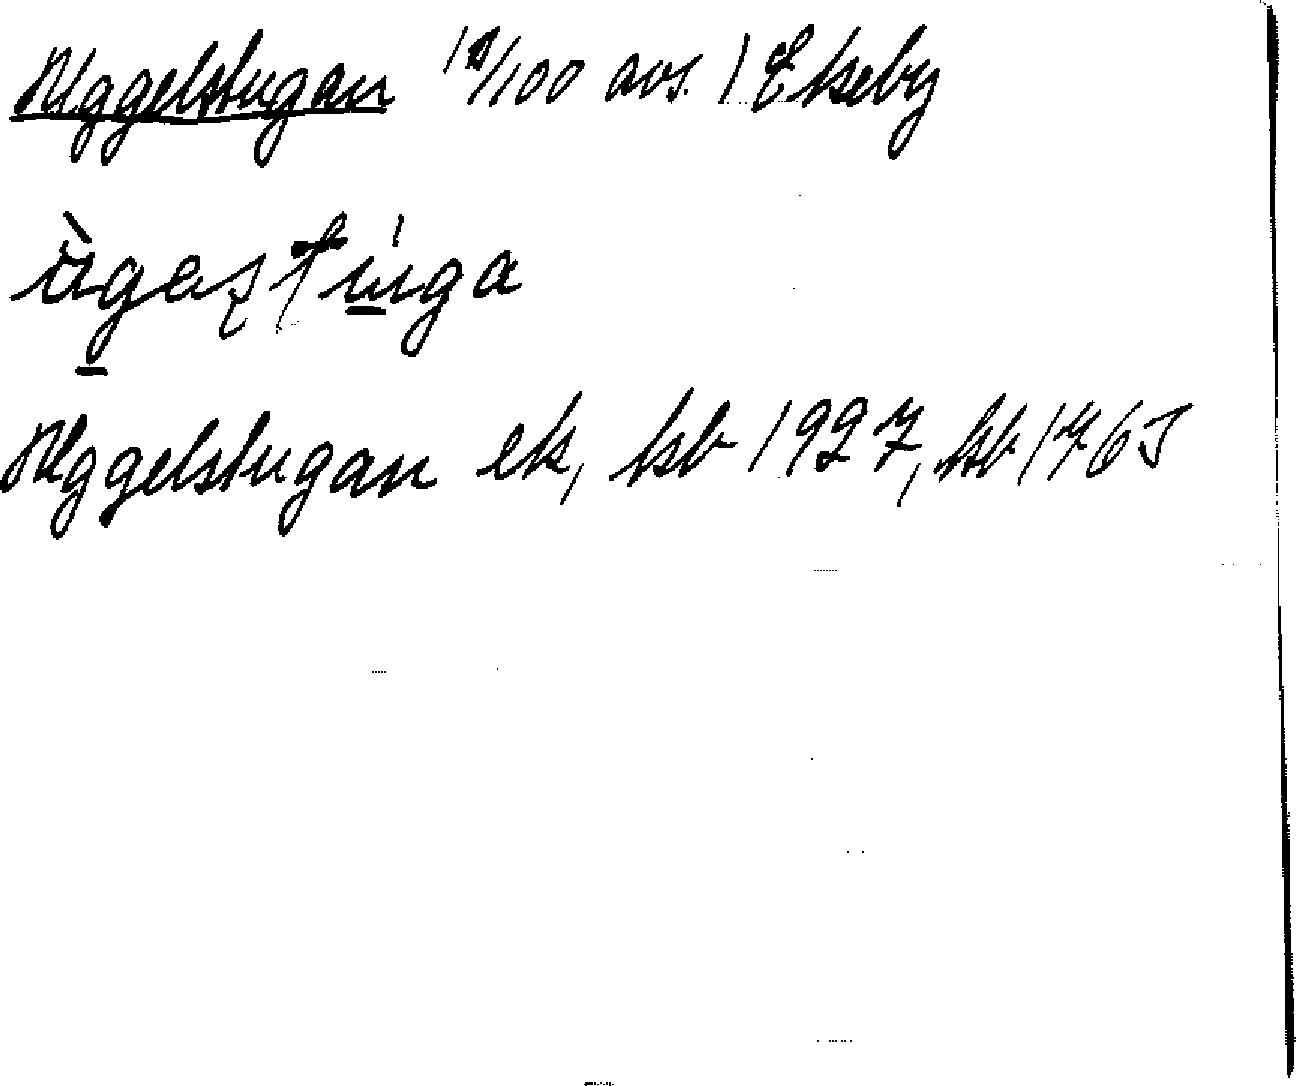 Uggelstugan 19/100 avs. 1 Ekeby
ùgaʂtuga
Uggelstugan ek, ksb 1927, hb 1765